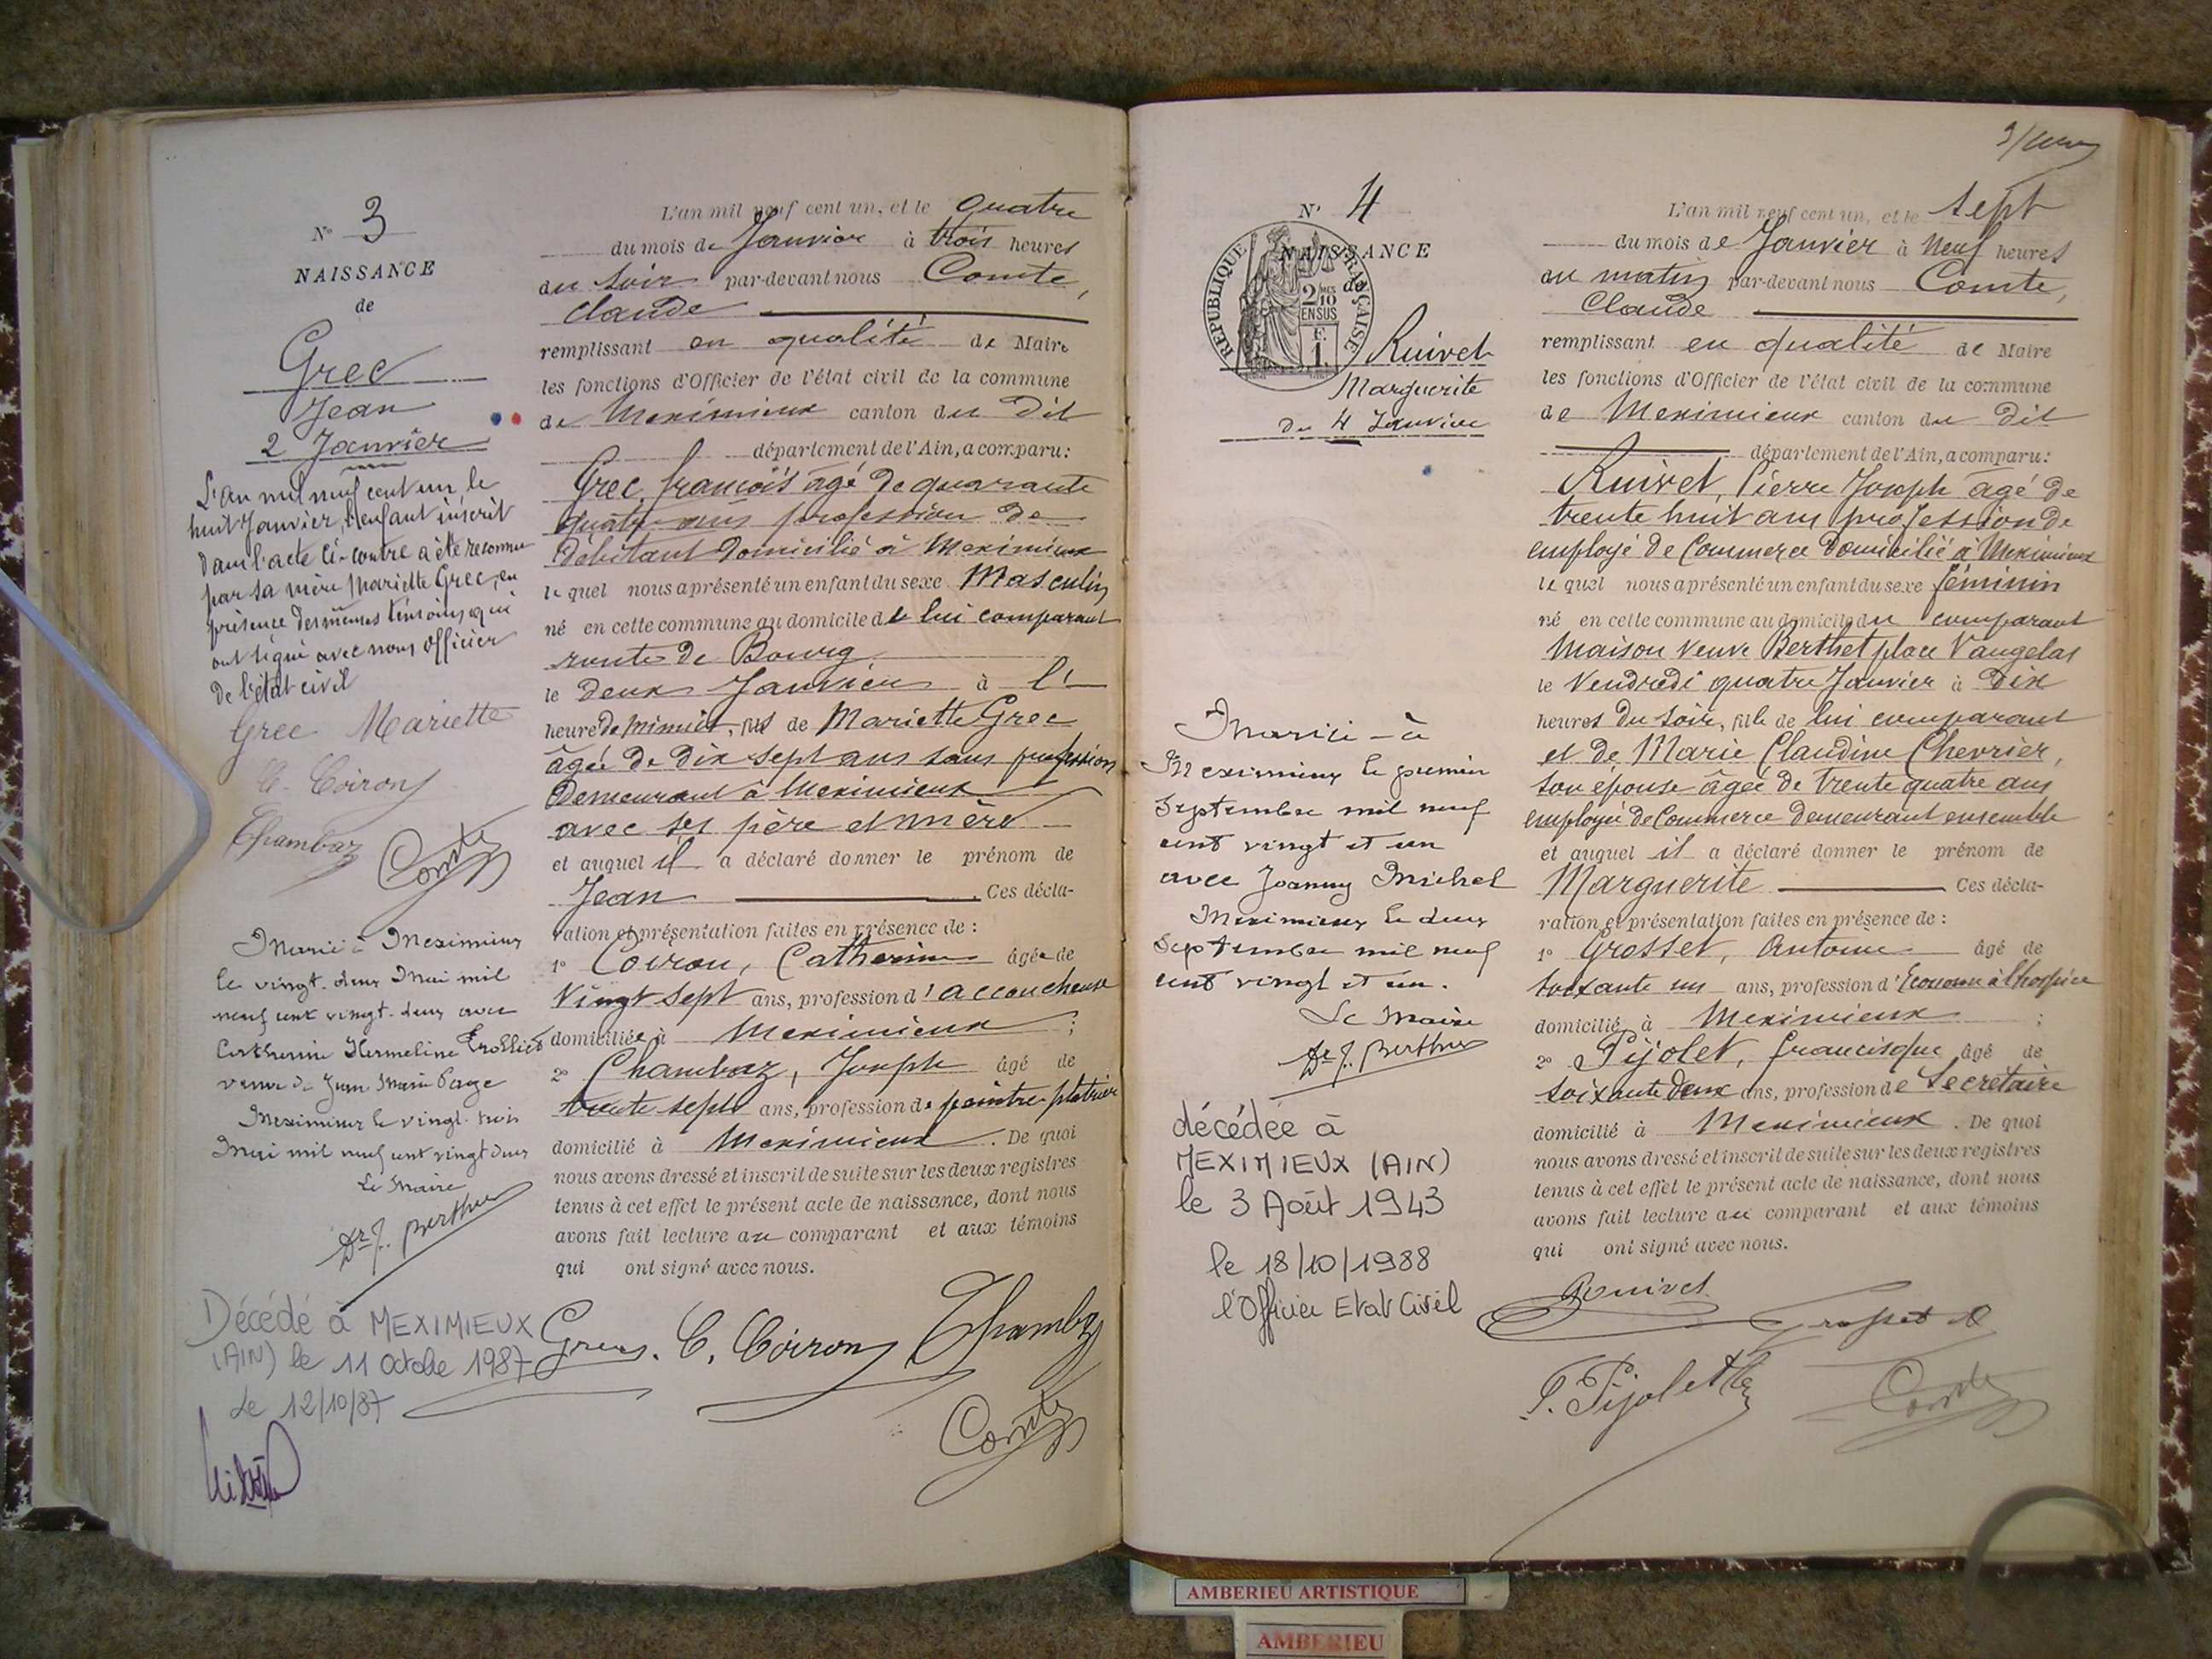 N° 3
NAISSANCE
de
Grec
Jean
2 Janvier
L'an mil neuf cent un, le
huit Janvier, l'enfant inscrit
dans l'acte ci-contre a été reconnu
par sa mère Mariette Grec, en
présence des mêmes témoins qui
ont signé avec nous officier
de l'état civil
Grec Mariette
C. Coiron
Chambaz
Comte
Marié à Meximieux
le vingt-deux Mai mil
neuf cent vingt-deux avec
Catherine Hermeline Trolliet
veuve de Jean Marie Page
Meximieux le vingt-trois
Mai mil neuf cent vingt deux
Le Maire
Dr J. Berthier
Décédé à MEXIMIEUX
(AIN) le 11 octobre 1987
Le 12/10/87
L'an mil neuf cent un, et le quatre
du mois de Janvier à trois heures
du soir par-devant nous Comte,
Claude
remplissant en qualité de Maire
les fonctions d'Officier de l'état civil de la commune
de Meximieux canton du dit
département de l'Ain, a comparu:
Grec, françois âgé de quarante
quatre ans profession de
débitant domicilié à Meximieux
le quel nous a présenté un enfant du sexe Masculin
né en cette commune au domicile de lui comparant
route de Bourg
le deux Janvier à l'
heure de minuit, fils de Mariette Grec
âgée de dix sept ans sans profession
demeurant à Meximieux
avec ses père et mère
et auquel il a déclaré donner le prénom de
Jean Ces décla-
ration et présentation faites en présence de :
1° Coiron, Catherine âgée de
vingt sept ans, profession d'accoucheuse
domiciliée à Meximieux ;
2° Chambaz, Joseph âgé de
trente sept ans, profession de peintre-plâtrier
domicilié à Meximieux. De quoi
nous avons dressé et inscrit de suite sur les deux registres
tenus à cet effet le présent acte de naissance, dont nous
avons fait lecture au comparant et aux témoins
qui ont signé avec nous.
Grec. C. Coiron Chambaz
Comte
N° 4
NAISSANCE
de
RÉPUBLIQUE FRANÇAISE
2/10 MES
EN SUS
Ruivet
Marguerite
Du 4 Janvier
Mariée à
Meximieux le premier
Septembre mil neuf
cent vingt et un
avec Joanny Michel
Meximieux le deux
Septembre mil neuf
cent vingt et un.
Le Maire
Dr J. Berthier
décédée à
MEXIMIEUX (AIN)
le 3 Août 1943
le 18/10/1988
l'Officier Etat Civil
L'an mil neuf cent un, et le sept
du mois de Janvier à Neuf heures
du matin par-devant nous Comte,
Claude
remplissant en qualité de Maire
les fonctions d'Officier de l'état civil de la commune
de Meximieux canton du dit
département de l'Ain, a comparu:
Ruivet, Pierre Joseph âgé de
trente huit ans profession de
employé de Commerce domicilié à Meximieux
le quel nous a présenté un enfant du sexe féminin
né en cette commune au domicile du comparant
Maison veuve Berthet place Vaugelas
le Vendredi quatre Janvier à Dix
heures du soir, fille de lui comparant
et de Marie Claudine Chevrier,
son épouse âgée de trente quatre ans
employée de Commerce demeurant ensemble
et auquel il a déclaré donner le prénom de
Marguerite Ces décla-
ration et présentation faites en présence de :
1° Grosset, Antoine âgé de
soixante un ans, profession d'Econome à l'hospice
domicilié à Meximieux ;
2° Pijolet, francisque âgé de
soixante deux ans, profession de Secrétaire
domicilié à Meximieux. De quoi
nous avons dressé et inscrit de suite sur les deux registres
tenus à cet effet le présent acte de naissance, dont nous
avons fait lecture au comparant et aux témoins
qui ont signé avec nous.
Rouivet Grosset A
F. Pijolet
Comte
AMBERIEU ARTISTIQUE
AMBERIEU